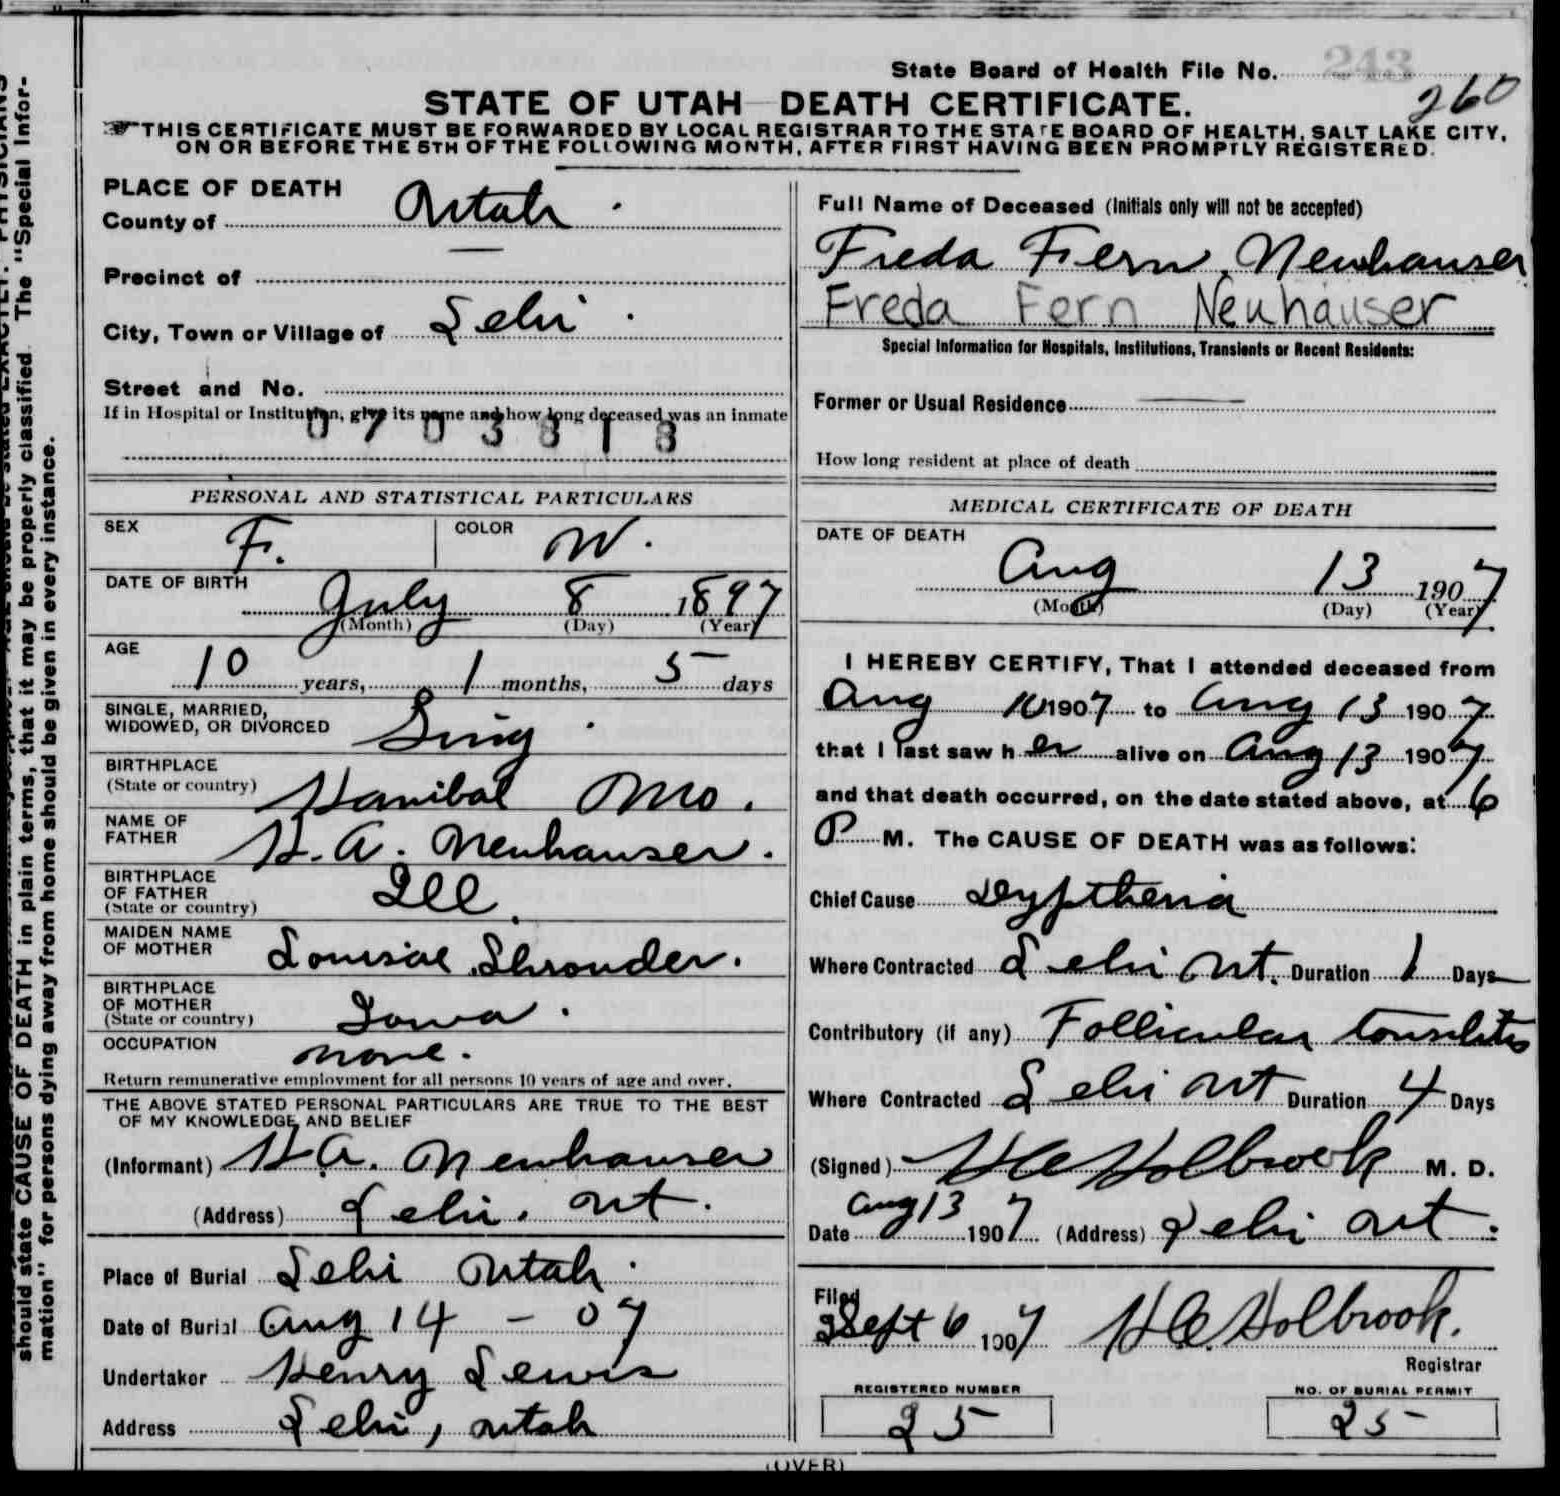 State Board of Health File No. 243
260
STATE OF UTAH DEATH CERTIFICATE.
THIS CERTIFICATE MUST BE FORWARDED BY LOCAL REGISTRAR TO THE STATE BOARD OF HEALTH, SALT LAKE CITY,
ON OR BEFORE THE 5TH OF THE FOLLOWING MONTH, AFTER FIRST HAVING BEEN PROMPTLY REGISTERED.
should state CAUSE OF DEATH in plain terms, that it may be properly classified. The "Special Infor-
mation" for persons dying away from home should be given in every instance.
PLACE OF DEATH
County of Utah.
Precinct of —
City, Town or Village of Lehi.
Street and No.
If in Hospital or Institution, give its name and how long deceased was an inmate
0703818
PERSONAL AND STATISTICAL PARTICULARS
SEX F. COLOR W.
DATE OF BIRTH July 8 1897
(Month) (Day) (Year)
AGE
10 years, 1 months, 5 days
SINGLE, MARRIED,
WIDOWED, OR DIVORCED Sing.
BIRTHPLACE
(State or country) Hanibal Mo.
NAME OF
FATHER H. A. Neuhauser.
BIRTHPLACE
OF FATHER
(State or country) Ill.
MAIDEN NAME
OF MOTHER Shrouder.
BIRTHPLACE
OF MOTHER
(State or country) Iowa.
OCCUPATION none.
Return remunerative employment for all persons 10 years of age and over.
THE ABOVE STATED PERSONAL PARTICULARS ARE TRUE TO THE BEST
OF MY KNOWLEDGE AND BELIEF
(Informant) H A. Neuhauser
(Address) Lehi. Ut.
Place of Burial Lehi Utah.
Date of Burial Aug 14 - 07
Undertaker Henry Lewis
Address Lehi, Utah
Full Name of Deceased (Initials only will not be accepted)
Freda Fern Neuhauser
Freda Fern Neuhauser
Special Information for Hospitals, Institutions, Transients or Recent Residents:
Former or Usual Residence —
How long resident at place of death
MEDICAL CERTIFICATE OF DEATH
DATE OF DEATH
Aug 13 1907
(Month) (Day) (Year)
I HEREBY CERTIFY, That I attended deceased from
Aug 10 1907 to Aug 13 1907
that I last saw her alive on Aug 13 1907
and that death occurred, on the date stated above, at 6
P M. The CAUSE OF DEATH was as follows:
Chief Cause Dyptheria
Where Contracted Lehi Ut. Duration 1 Days
Contributory (if any) Follicular tonsilitis
Where Contracted Lehi Ut Duration 4 Days
(Signed) H C Holbrook M. D.
Date Aug 13 1907 (Address) Lehi Ut.
Filed
Sept 6 1907 H C. Holbrook.
Registrar
REGISTERED NUMBER
25
NO. OF BURIAL PERMIT
25
(OVER)